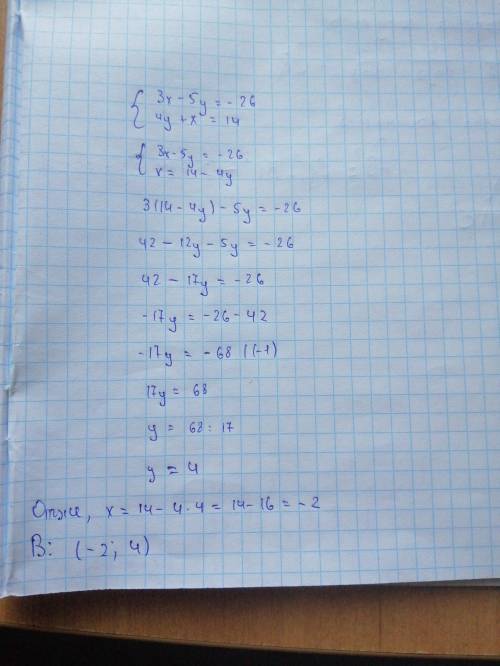 { 3x - 5y = - 26
4y + x = 14
{ 3x - 5y = - 26
x = 14 - 4y
3(14 - 4y) - 5y = - 26
42 - 12y - 5y = - 26
42 - 17y = - 26
-17y = - 26 - 42
-17y = - 68 |(-1)
17y = 68
y = 68 : 17
y = 4
Отже, x = 14 - 4 · 4 = 14 - 16 = - 2
В: (- 2; 4)